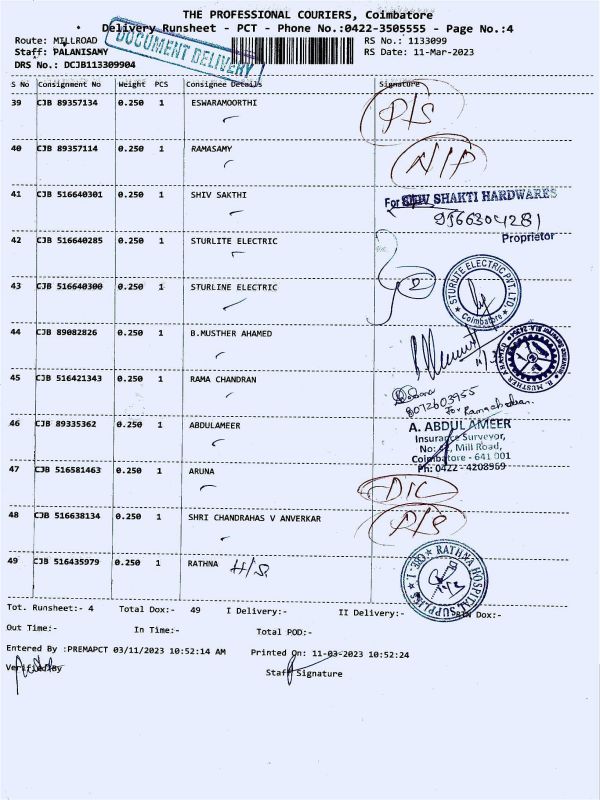 THE PROFESSIONAL COURIERS, Coimbatore
Delivery Runsheet - PCT - Phone No.:0422-3505555 - Page No.:4
Route: MILLROAD RS No.: 1133099
Staff: PALANISAMY RS Date: 11-Mar-2023
DRS No.: DCJB113309904
DOCUMENT DELIVERY
S No Consignment No Weight PCS Consignee Details Signature
39 CJB 89357134 0.250 1 ESWARAMOORTHI P/S
40 CJB 89357114 0.250 1 RAMASAMY N/P
41 CJB 516640301 0.250 1 SHIV SAKTHI For SHIV SHAKTI HARDWARES
9566304281
Proprietor
42 CJB 516640285 0.250 1 STURLITE ELECTRIC
43 CJB 516640300 0.250 1 STURLINE ELECTRIC D STURLITE ELECTRIC PVT. LTD. Coimbatore
44 CJB 89082826 0.250 1 B.MUSTHER AHAMED B. MUSTHER AHAMED
45 CJB 516421343 0.250 1 RAMA CHANDRAN
8072603955
For Ramachandran.
46 CJB 89335362 0.250 1 ABDULAMEER A. ABDUL AMEER
Insurance Surveyor,
Mill Road,
Coimbatore - 641 001
Ph: 0422 - 4208969
47 CJB 516581463 0.250 1 ARUNA D/C
48 CJB 516638134 0.250 1 SHRI CHANDRAHAS V ANVERKAR P/S
49 CJB 516435979 0.250 1 RATHNA H/S RATHNA HOSPITAL SUPPLIES CBE. 1
Tot. Runsheet:- 4 Total Dox:- 49 I Delivery:- II Delivery:- Dox:-
Out Time:- In Time:- Total POD:-
Entered By :PREMAPCT 03/11/2023 10:52:14 AM Printed On: 11-03-2023 10:52:24
Verified By Staff Signature